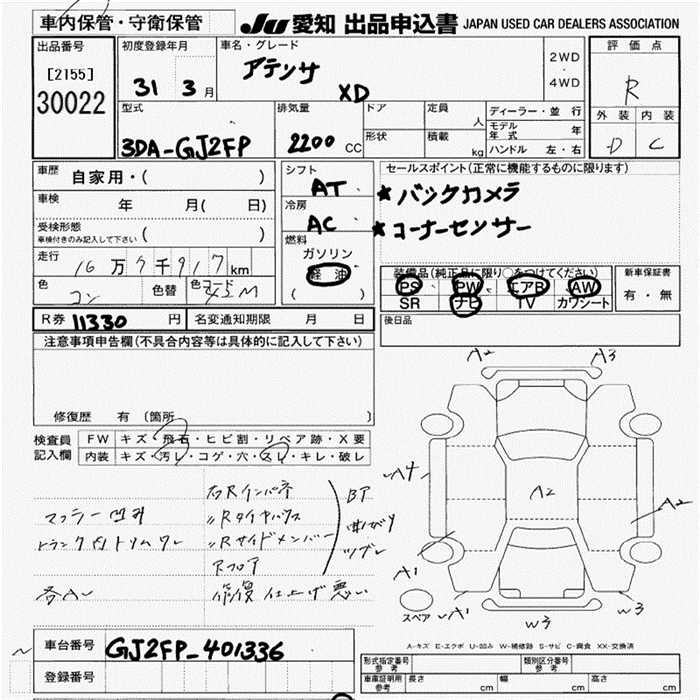 車内保管・守衛保管
JU 愛知 出品申込書 JAPAN USED CAR DEALERS ASSOCIATION
出品番号
[2155]
30022
初度登録年月
31 3月
車名・グレード
アテンザ
XD
2WD
・
4WD
評価点
R
外装 内装
D C
型式
3DA-GJ2FP
排気量
2200 CC
ドア
定員
人
形状
積載
kg
ディーラー・並行
モデル年式 年
ハンドル 左・右
車歴
自家用・( )
車検
年 月( 日)
受検形態
車検付きのみ記入して下さい ( )
走行
16万7千917km
色
コン
色替
色コード
42M
シフト
AT
冷房
AC
燃料
ガソリン
軽油
( )
セールスポイント(正常に機能するものに限ります)
★バックカメラ
★コーナーセンサー
装備品(純正品に限り○をつけてください)
PS PW エアB AW
SR ナビ TV カワシート
新車保証書
有・無
R券 11330円
名変通知期限 月 日
後日品
注意事項申告欄(不具合内容等は具体的に記入して下さい)
修復歴 有 〔箇所 〕
検査員記入欄
FW キズ・飛石・ヒビ割・リペア跡・X要
内装 キズ・汚レ・コゲ・穴・スレ・キレ・破レ
右Rインパネ
マフラー凹み
〃Rタイヤハウス
トランク内トリムワレ
〃Rサイドメンバー
Rフロア
BP
曲がり
ツブレ
各A
修復仕上げ悪い
A2 A3
A4
A2
A2
A1
A1
W3
W3
スペア
A-キズ E-エクボ U-凹み W-補修跡 S-サビ C-腐食 XX-交換済
車台番号
GJ2FP-401336
登録番号
型式指定番号 参考
類別区分番号 参考
車庫証明用 参考
長さ cm
幅 cm
高さ cm